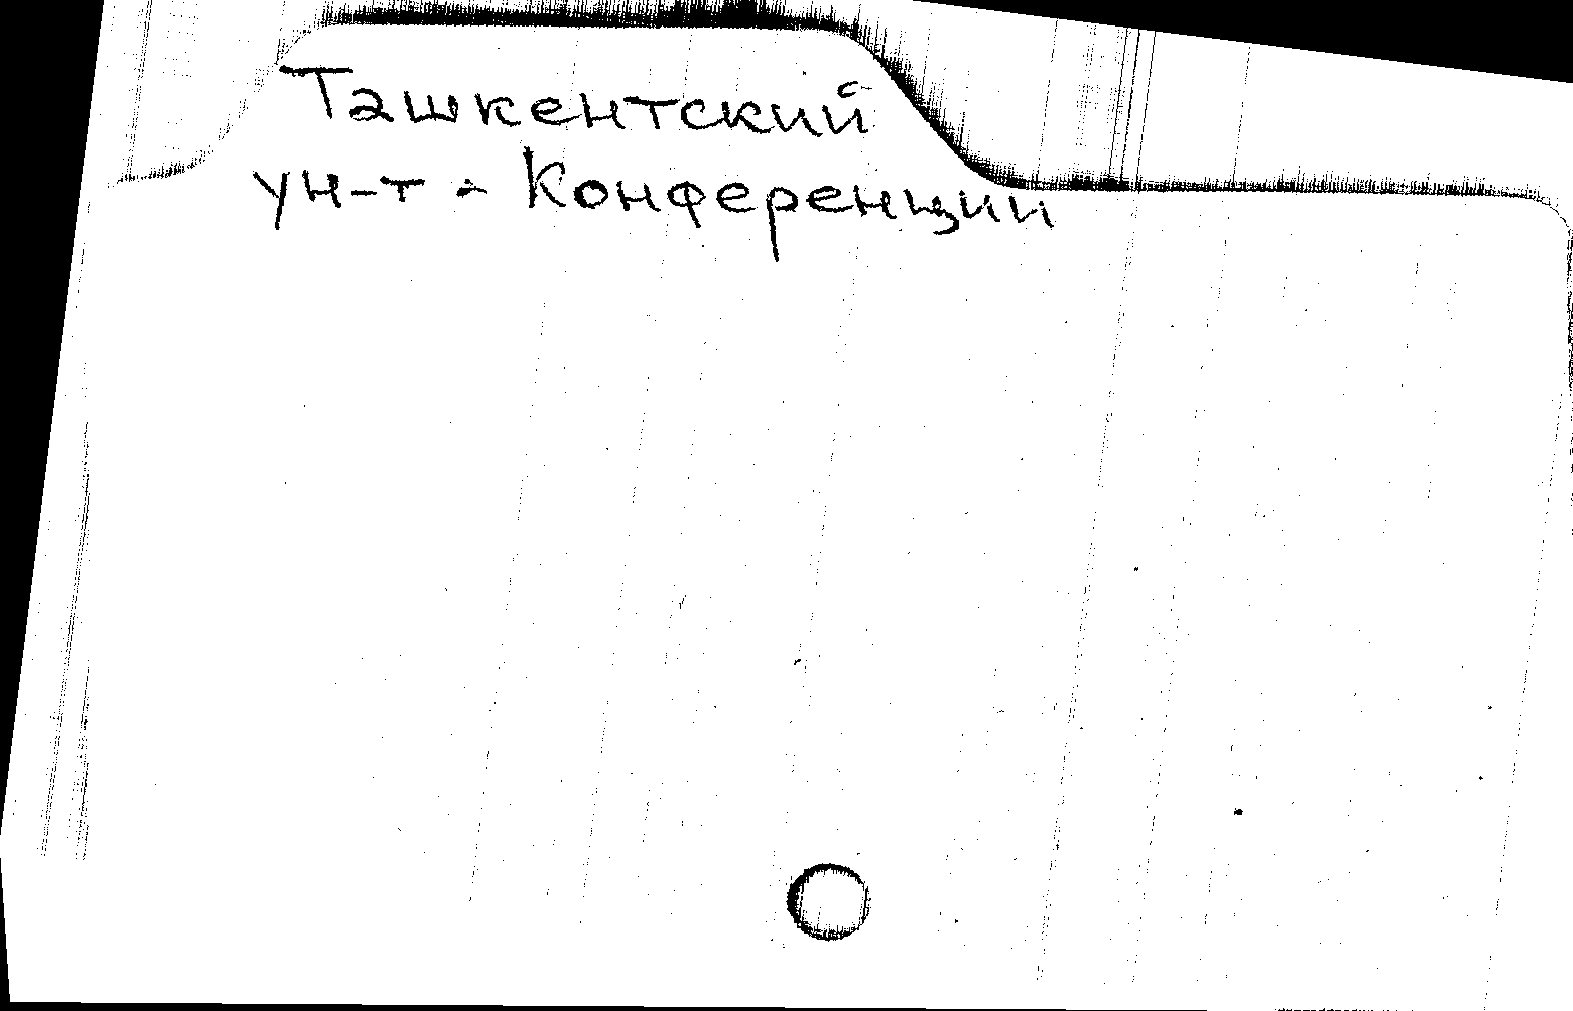 Ташкентский
ун-т - Конференции